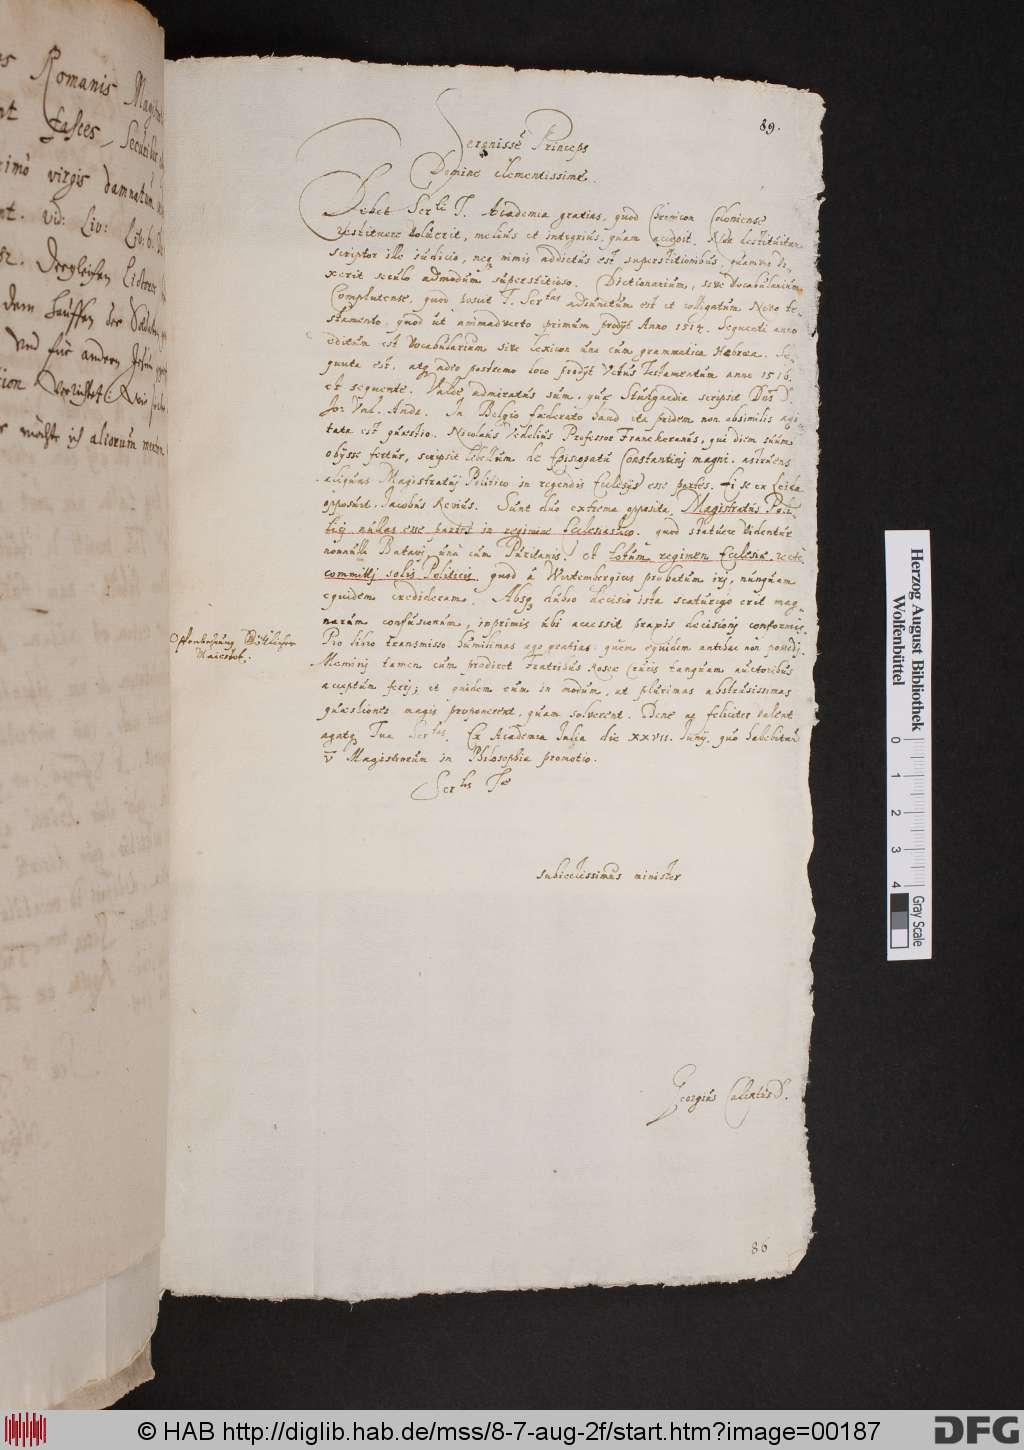 es Romanis
fasces, Securibus
virgis damnatum
vid: Liv: Lib: 6.
Dergleichen
dem hauffen der
Vnd für andern
möchte ich aliorum
89.
Serenissē Princeps
Domine clementissime.
Debet Serti T. Academia gratias, quod Chronicon Coloniense
restituere voluerit, melius et integrius, quam accepit. Nec destituitur
scriptor ille iudicio, neq nimis addictus est superstitionibus, quamvis vi-
xerit seculo admodum superstitioso. Dictionarium, sive Vocabularium
Complutense, quod iussit T. Sertas adiunctum est et colligatum Novo te-
stamento, quod ut animadverto primum prodijt Anno 1514. Sequenti anno
editum est Vocabularium sive lexicon una cum grammatica Hebræa. Se-
quuta est, atq adeo postremo loco prodijt Vetus Testamentum anno 1516.
et sequente. Valde admiratus sum, quæ Stutgardia scripsit Dns D.
Jo: Val. Andr. In Belgio fœderato haud ita pridem non absimilis agi-
tata est quæstio. Nicolaus Vedelius Professor Franekeranus, qui diem suum
obijsse fertur, scripsit libellum de Episcopatu Constantini magni, astruens
aliquas Magistratuj Politico in regendis Ecclesijs esse partes. Ei se ex
opposuit Jacobus Revius. Sunt duo extrema opposita, Magistratus Poli-
ticj nullas esse partes in regimine Ecclesiastico, quod statuere videntur
nonnulli Batavi, una cum Puritanis. et totum regimen Ecclesiæ recte
committj solis Politicis quod à Wirtembergicis probatum irj, nunquam
equidem credideram. Absq dubio decisio ista scaturigo erit mag-
narum confusionum, inprimis ubi accessit praxis decisionj conformis.
Pro libro transmisso humilimas ago gratias: quem equidem antehac non possedj.
Meminj tamen cum prodiret Fratribus Roseæ Crucis tanquam auctoribus
acceptum ferrj; et quidem eum in modum, ut plurimas abstrusissimas
quæstiones magis proponerent, quam solverent. Bene ac feliciter valeat
agatq Tua Sertas. Ex Academia Julia die XXVII. Junij. quo habebitur
V Magistrorum in Philosophia promotio.
Offenbahrung Göttlicher
Maiestet.
Sertis Tæ
subiectissimus minister
Georgius Calixtus D.
86
Herzog August Bibliothek
Wolfenbüttel
0 1 2 3 4
Gray Scale
© HAB http://diglib.hab.de/mss/8-7-aug-2f/start.htm?image=00187
DFG